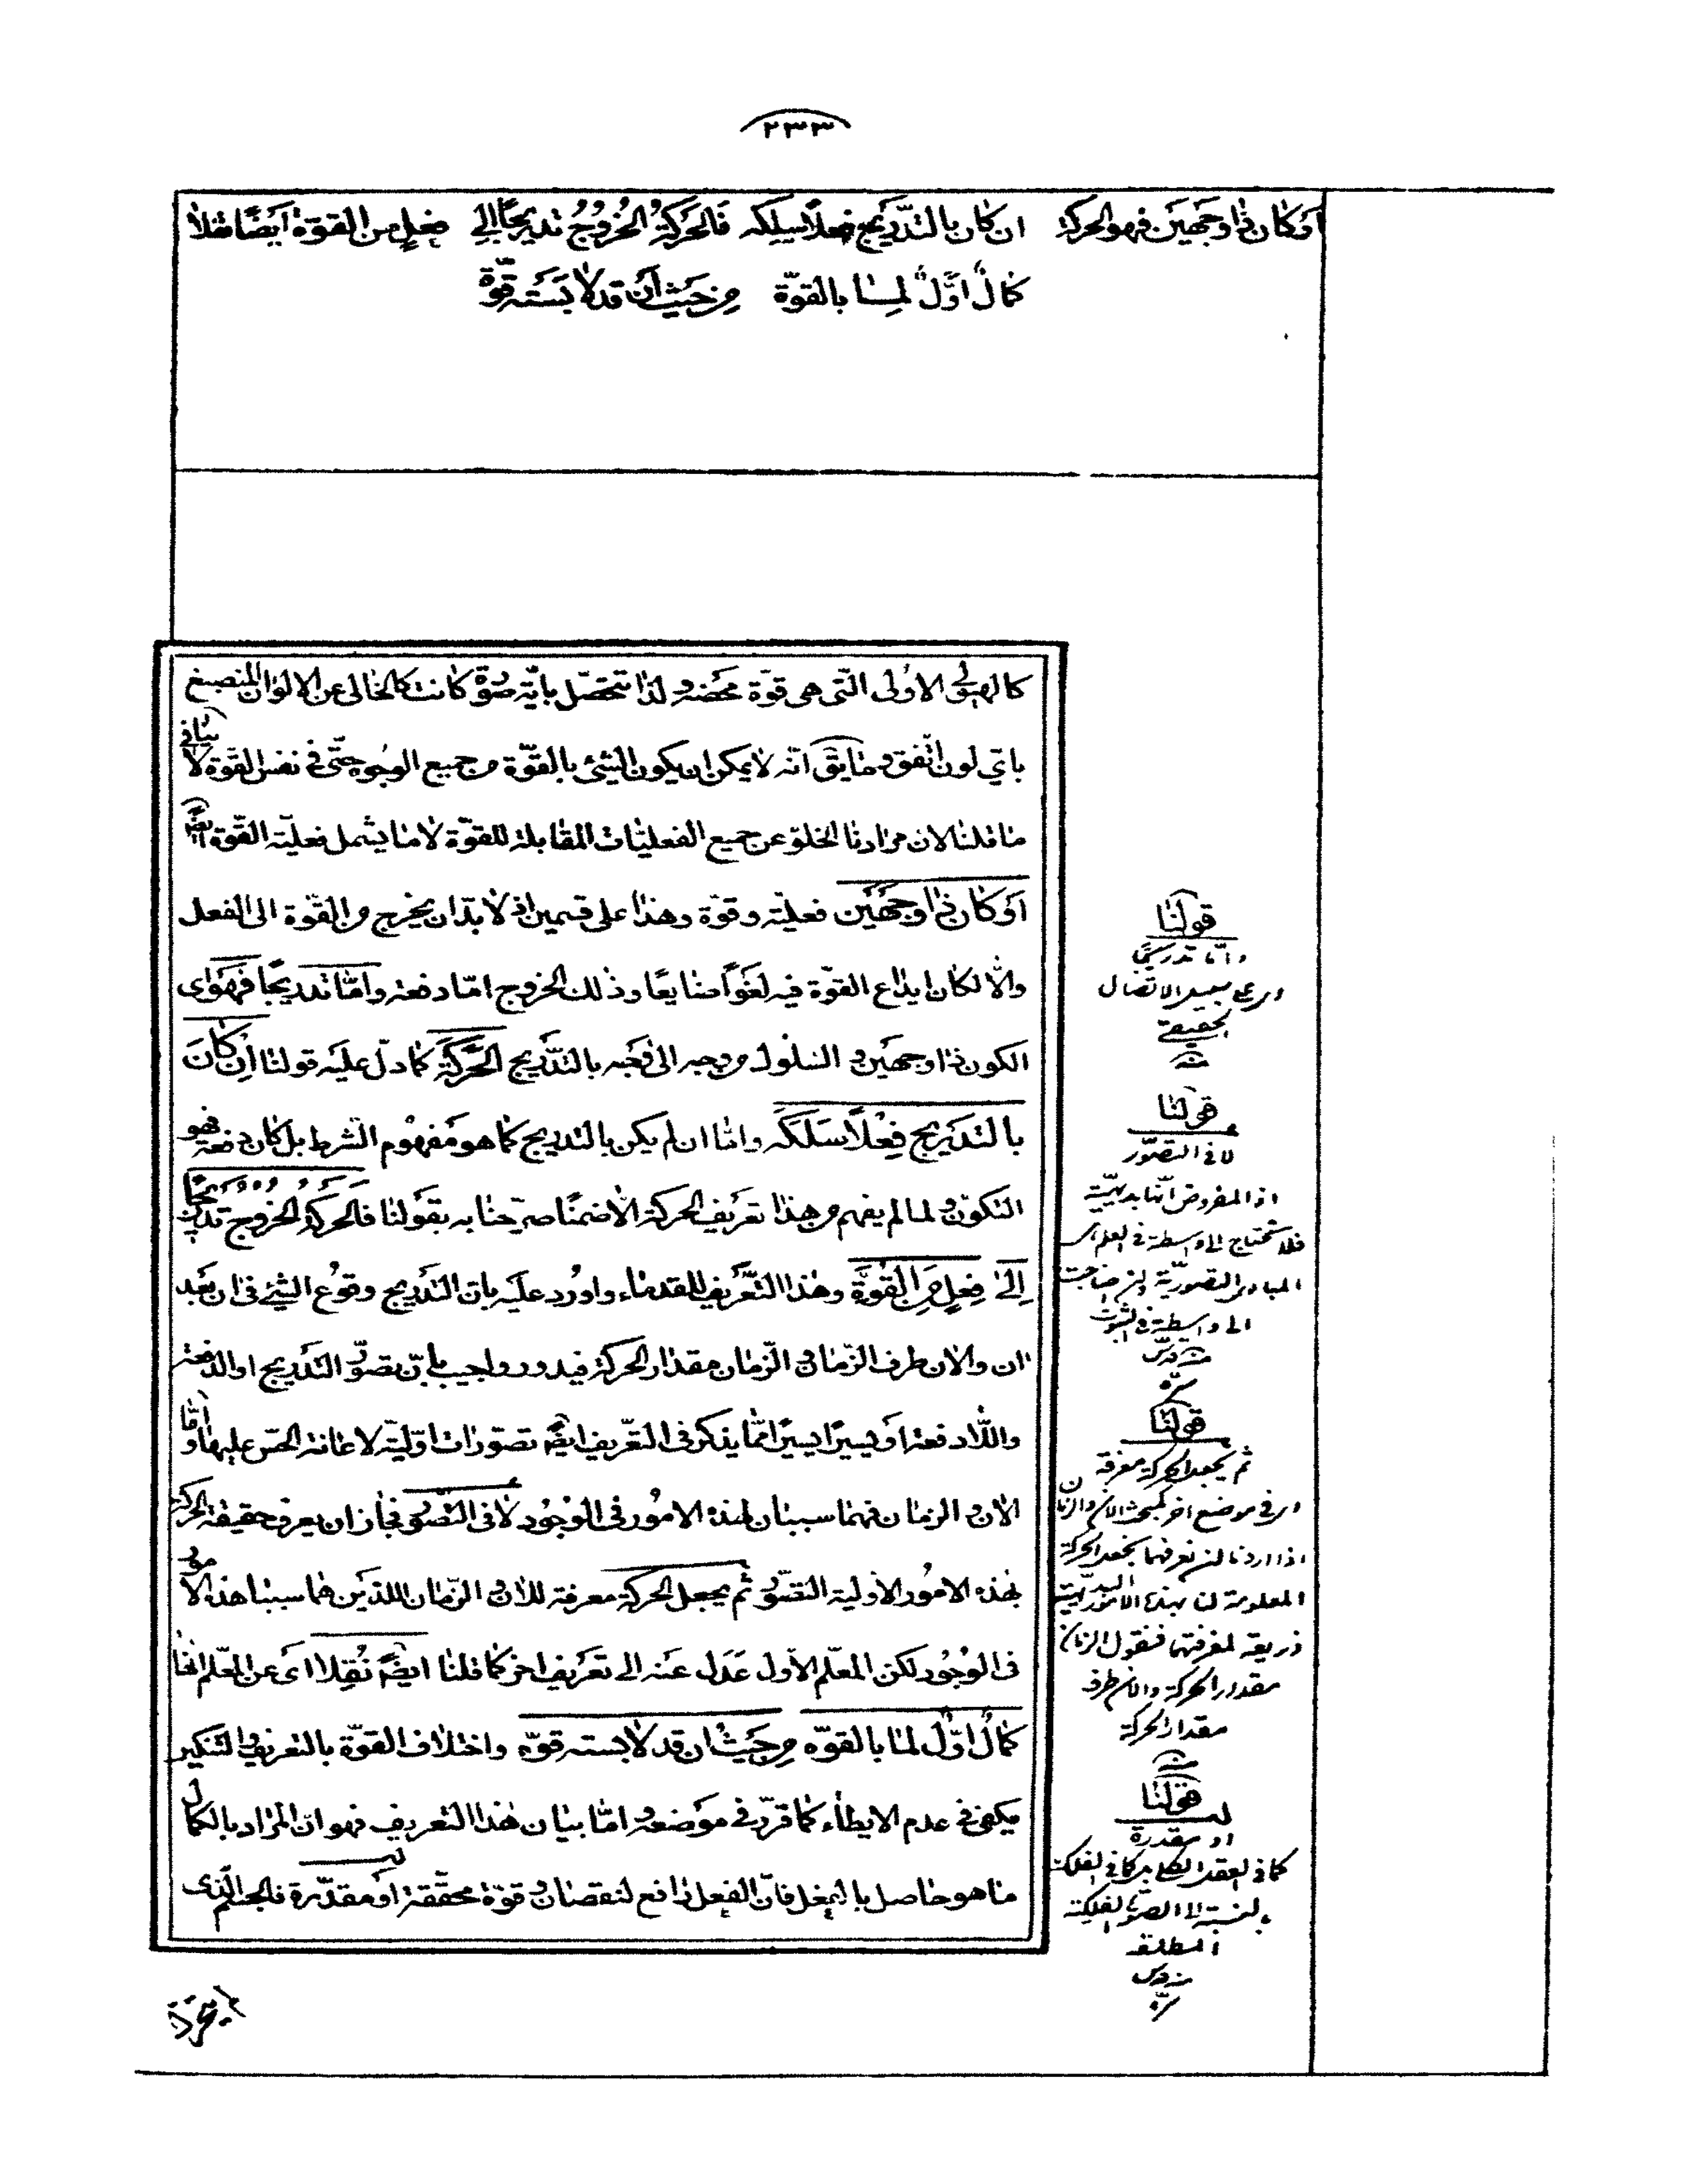 ٢٣٣
اَوْ كان ذا وجهين فهو الحركة ان كان بالتّدريج فعلاً سلكه فَالحَركَةُ الخُروُجُ تدريجًا اِلى فعلٍ من القوّة اَيضًا نقلا
كمالٌ اوّلٌ لما بالقوّة من حيث اَن قد لا بسته قوّة
كالهيولى الاولى الّتى هى قوّة محضة ولذا تتحصّل بايّة صورة كانت كالخالى عن الالوان المنصبغ
باىّ لون اتّفق وما يق انّه لا يمكن ان يكون الشئ بالقوّة من جميع الوجوه حتّى فى نفس القوّة لا ينافى
ما قلنا لان مرادنا الخلوّ عن جميع الفعليّات المقابلة للقوّة لا ما يشمل فعليّة القوّة ايضا
اَوْ كان ذا وجهين فعليّة وقوّة وهذا على قسمين اذ لا بدّ ان يخرج من القوّة الى الفعل
والّا لكان ايداع القوّة فيه لغوًا ضايعًا وذلك الخروج امّا دفعة وامّا تدريجًا فهوَ اى
الكون ذا وجهين والسلوك من وجه الى وجه بالتّدريج الحَرَكَة كما دلّ عليه قولنا اِن كانَ
بالتدريج فِعْلًا سَلَكَه وامّا ان لم يكن بالتدريج كما هو مفهوم الشّرط بل كان دفعة فهو
التكوّن ولما لم يفهم من هذا تعريف الحركة الّا ضمنًا صرّحنا به بقولنا فالحركة الخروج تدريجًا
اِلى فِعلٍ مِن القُوّة وهذا التّعريف للقدماء واورد عليه بانّ التّدريج وقوع الشئ فى ان بعد
ان والان طرف الزّمان والزّمان مقدار الحركة فيدور واجيب بانّ تصوّر التّدريج او الدفعة
واللّا دفعة او يسيرًا يسيرًا ممّا يذكر فى التّعريف ايضا تصوّرات اوّليّة لاعانة الحسّ عليها وامّا
الان والزمان فهما سببان لهذه الامور فى الوجود لا فى التّصوّر فجاز ان يعرف حقيقة الحركة
بهذه الامور الاوليّة التصوّر ثمّ يجعل الحركة معرفة للان والزّمان اللذين هما سببا هذه الامور
فى الوجود لكن المعلّم الاوّل عَدَل عنه الى تعريف اخر كما قلنا ايضا نُقِلا اى عن المعلّم ايضا
كمالٌ اوّلٌ لما بالقوّه من حيث ان قد لا بسته قوّه واختلاف القوّة بالتعريف والتنكير
يكفى فى عدم الايطاء كما قرّر فى موضعه وامّا بيان هذا التّعريف فهو ان المراد بالكمال
ما هو حاصل بالفعل فانّ الفعل رافع لنقصان وقوّة محقّقة او مقدّرة فالجسم الّذى
قولنا
وامّا تدريجًا
اى على سبيل الاتّصال
الحقيقى
منه
قولنا
لا فى التصوّر
اذ المفروض انّها بديهيّة
فلا تحتاج الى واسطة فى العلم اى
المبادى التصوّريّة وان احتاجت
الى واسطة فى الثبوت
منه قدس
سرّه
قولنا
ثم يجعل الحركة معرفة
اى فى موضع اخر كمبحث الان والزمان
اذا اردنا ان نعرفهما نجعل الحركة
المعلومة لنا بهذه الامور البديهيّة
ذريعة لمعرفتهما فنقول الزمان
مقدار الحركة والان طرف
مقدار الحركة
منه
قولنا
او مقدرة
كما فى العقل الكلى بل كما فى الفلك
بالنسبة الى الصورة الفلكيّة
المطلقة
منه قدس
سرّه